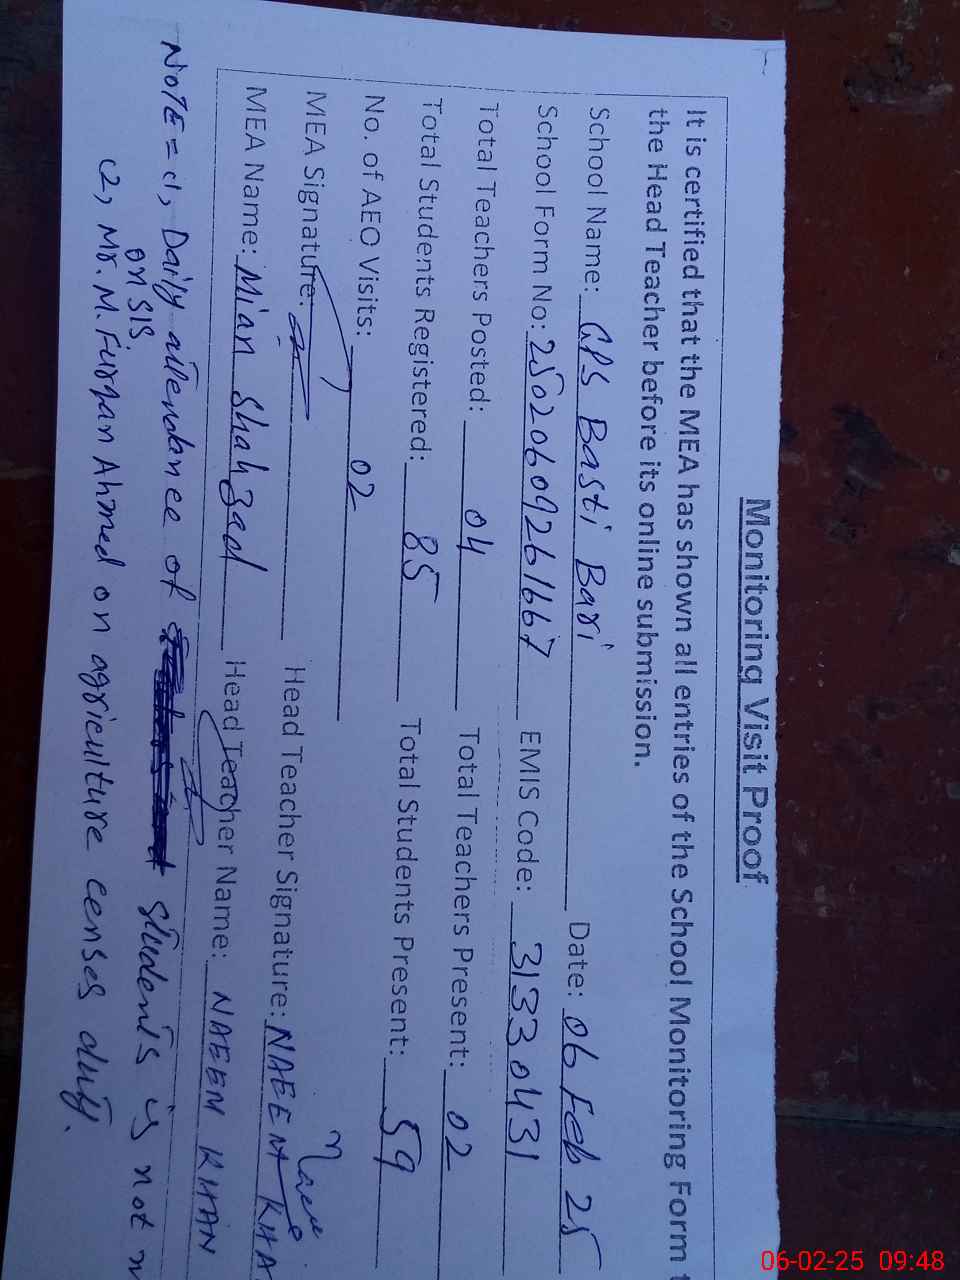 Monitoring Visit Proof
It is certified that the MEA has shown all entries of the School Monitoring Form t
the Head Teacher before its online submission.
School Name: GPS Basti Bari Date: 06 Feb 25
School Form No: 25020609261667 EMIS Code: 31330431
Total Teachers Posted: 04 Total Teachers Present: 02
Total Students Registered: 85 Total Students Present: 59
No. of AEO Visits: 02
MEA Signature: Head Teacher Signature: NAEEM KHA
MEA Name: Mian Shahzad Head Teacher Name: NAEEM KHAN
NOTE = 1, Daily attendance of students is not m
on SIS.
2, Mr. M. Furqan Ahmed on agriculture censes duty.
06-02-25 09:48